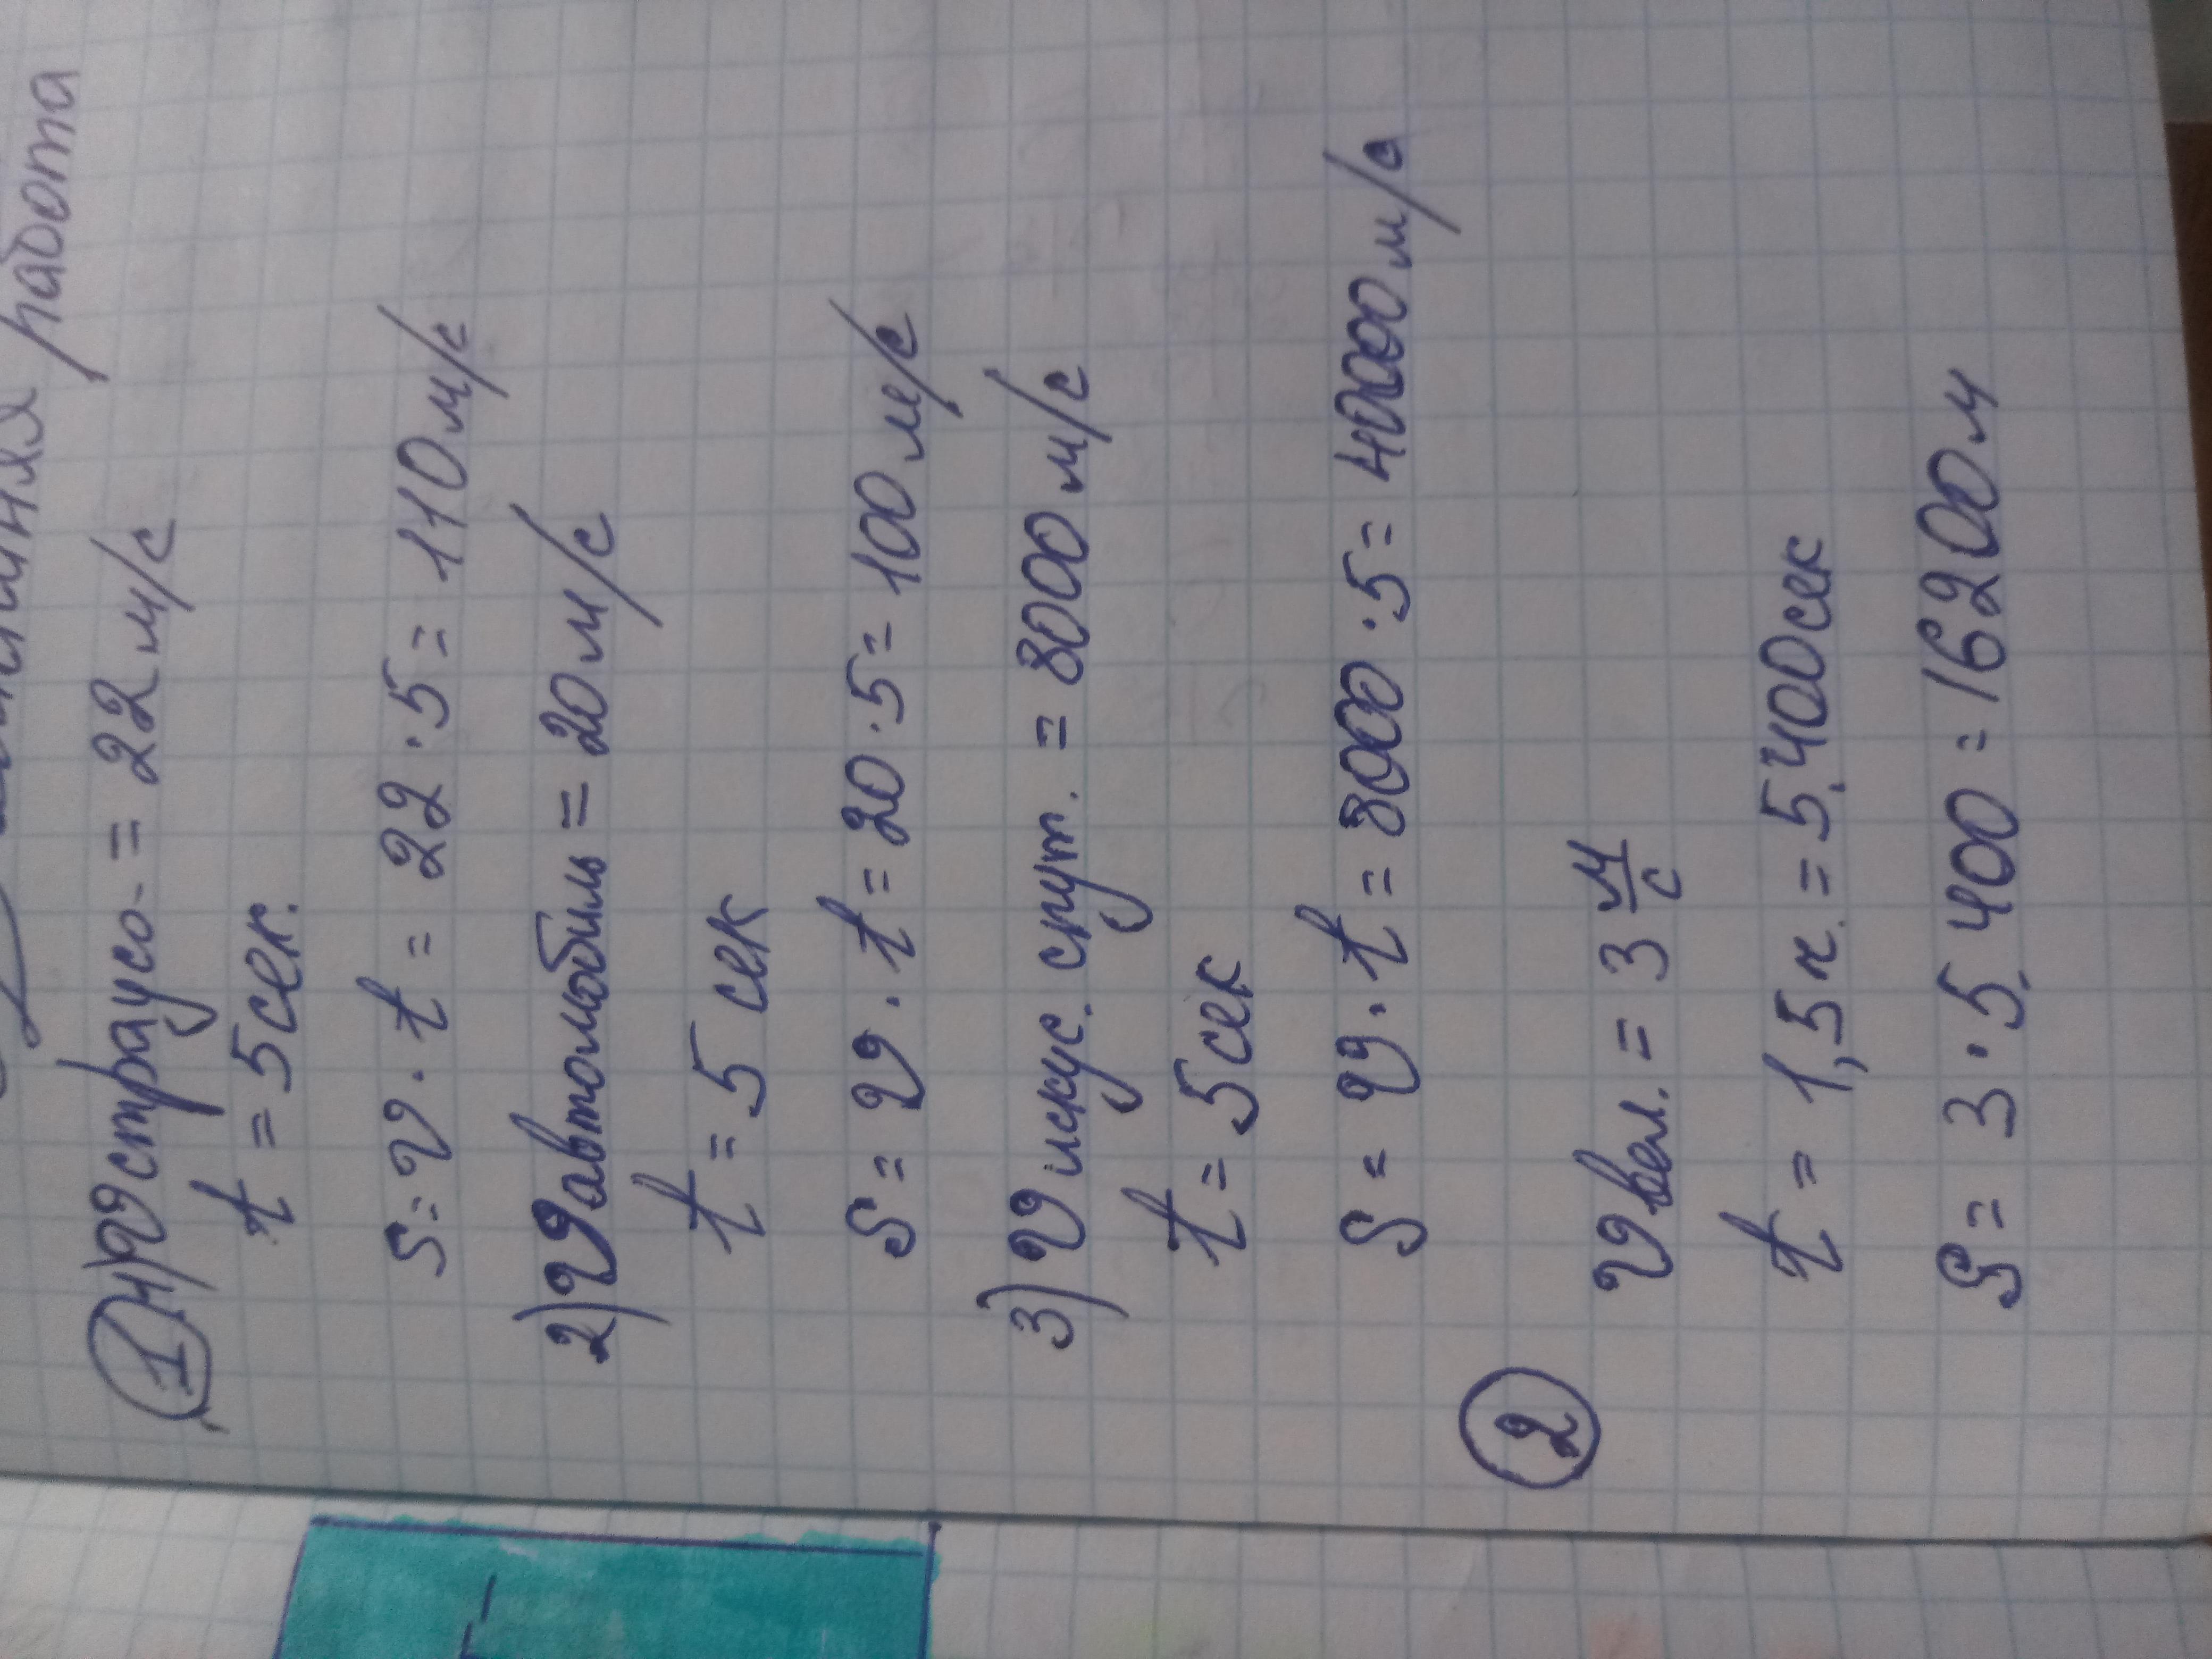 работа
① 1) υ страус = 22 м/с
t = 5 сек.
S = υ · t = 22 · 5 = 110 м/с
2) υ автомобиль = 20 м/с
t = 5 сек
S = υ · t = 20 · 5 = 100 м/с
3) υ искус. спут. = 8000 м/с
t = 5 сек
S = υ · t = 8000 · 5 = 40000 м/с
②
υ вел. = 3 м/с
t = 1,5 ч. = 5.400 сек
S = 3 · 5.400 = 16200 м